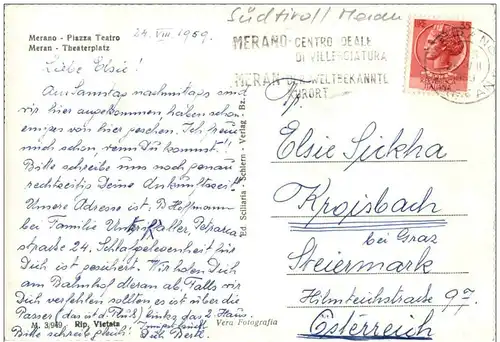 Merano - Piazza Teatro
Meran - Theaterplatz
24. VIII. 1959.
Südtirol! Meran
MERANO - CENTRO IDEALE
DI VILLEGGIATURA
MERAN WELTBEKANNTE
KURORT
ITALIANA
Liebe Elsie!
Am Samstag nachmittags sind
wir hier angekommen haben schon
einiges von hier gesehen. Ich freue
mich schon, wenn Du kommst!
Bitte schreibe uns noch genau
rechtzeitig Deine Ankunftszeit.
Unsere Adresse ist: B. Hoffmann
bei Familie
straße 24. Schlafgelegenheit für
Dich ist gesichert. Wir holen Dich
am Bahnhof Meran ab. Falls wir
Dich verfehlen sollten es ist über die
Passer (das ist d. Fluß) links das 2. Haus.
Bitte schreibe gleich! Dich Bertl.
Ed. Sellaria - Schlern - Verlag Bz.
M. 3/949 Rip. Vietata Vera Fotografia
An
Elsie Sickha
Kroisbach
bei Graz
Steiermark
Hilmteichstraße 97
Österreich